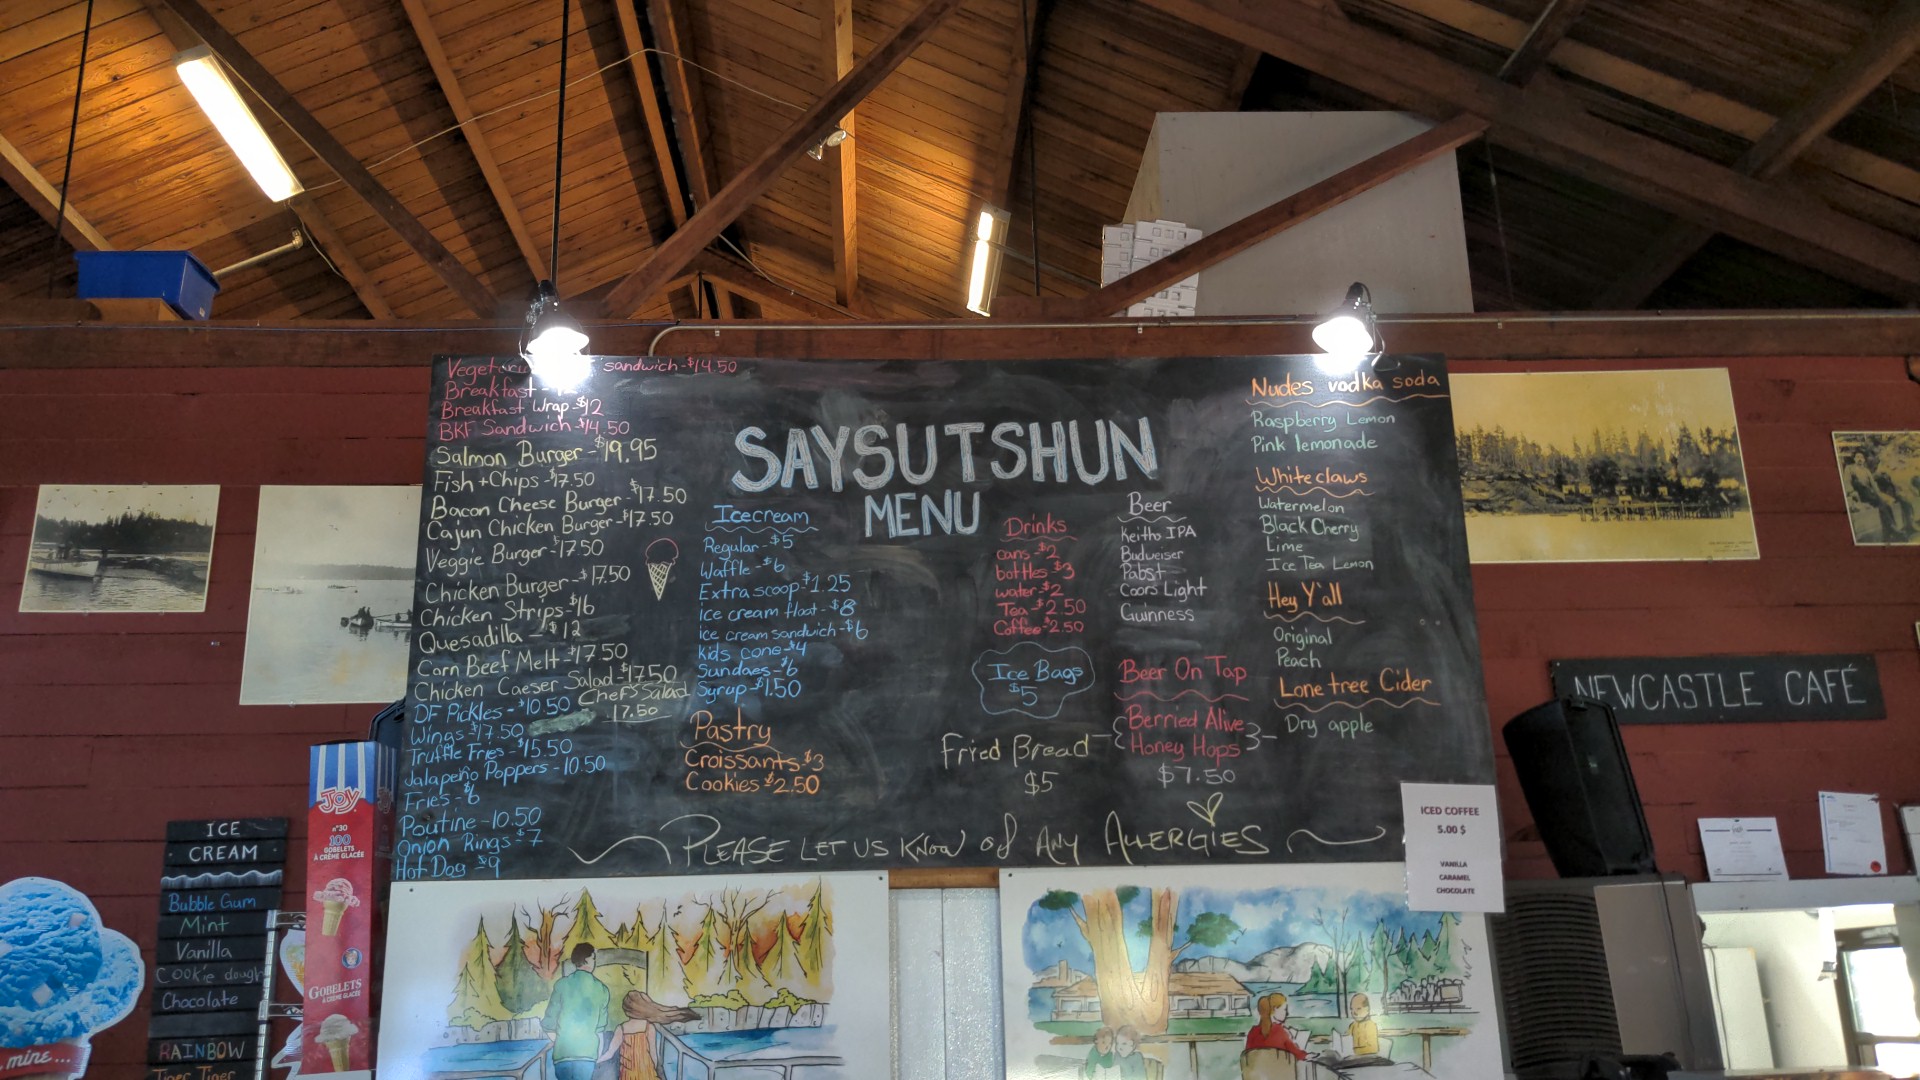 sandwich-$14.50
Breakfast
Breakfast Wrap-$12
BKF Sandwich-$14.50
Salmon Burger-$19.95
Fish+Chips-$17.50
Bacon Cheese Burger-$17.50
Cajun Chicken Burger-$17.50
Veggie Burger-$17.50
Chicken Burger-$17.50
Chicken Strips-$16
Quesadilla-$12
Corn Beef Melt-$17.50
Chicken Caeser Salad-$17.50
Chef's Salad
17.50
DF Pickles-$10.50
Wings-$17.50
Truffle Fries-$15.50
Jalapeño Poppers-10.50
Fries-$6
Poutine-10.50
Onion Rings-$7
Hot Dog-$9
SAYSUTSHUN
MENU
Icecream
Regular-$5
Waffle-$6
Extra scoop-$1.25
ice cream float-$8
ice cream sandwich-$6
kids cone-$4
Sundaes-$6
Syrup-$1.50
Pastry
Croissants-$3
Cookies $2.50
Drinks
cans-$2
bottles-$3
water-$2
Tea-$2.50
Coffee-$2.50
Ice Bags
$5
Fried Bread
$5
Beer
Keiths IPA
Budweiser
Pabst
Coors Light
Guinness
Beer On Tap
Berried Alive
Honey Hops
$7.50
Nudes vodka soda
Raspberry Lemon
Pink lemonade
Whiteclaws
Watermelon
Black Cherry
Lime
Ice Tea Lemon
Hey Y'all
Original
Peach
Lonetree Cider
Dry apple
PLEASE LET US KNOW of ANY ALLERGIES
ICED COFFEE
5.00 $
VANILLA
CARAMEL
CHOCOLATE
NEWCASTLE CAFÉ
ICE
CREAM
Bubble Gum
Mint
Vanilla
Cookie dough
Chocolate
RAINBOW
Tiger Tiger
JOY
n°30
100
GOBELETS
À CRÈME GLACÉE
GOBELETS
À CRÈME GLACÉE
mine...